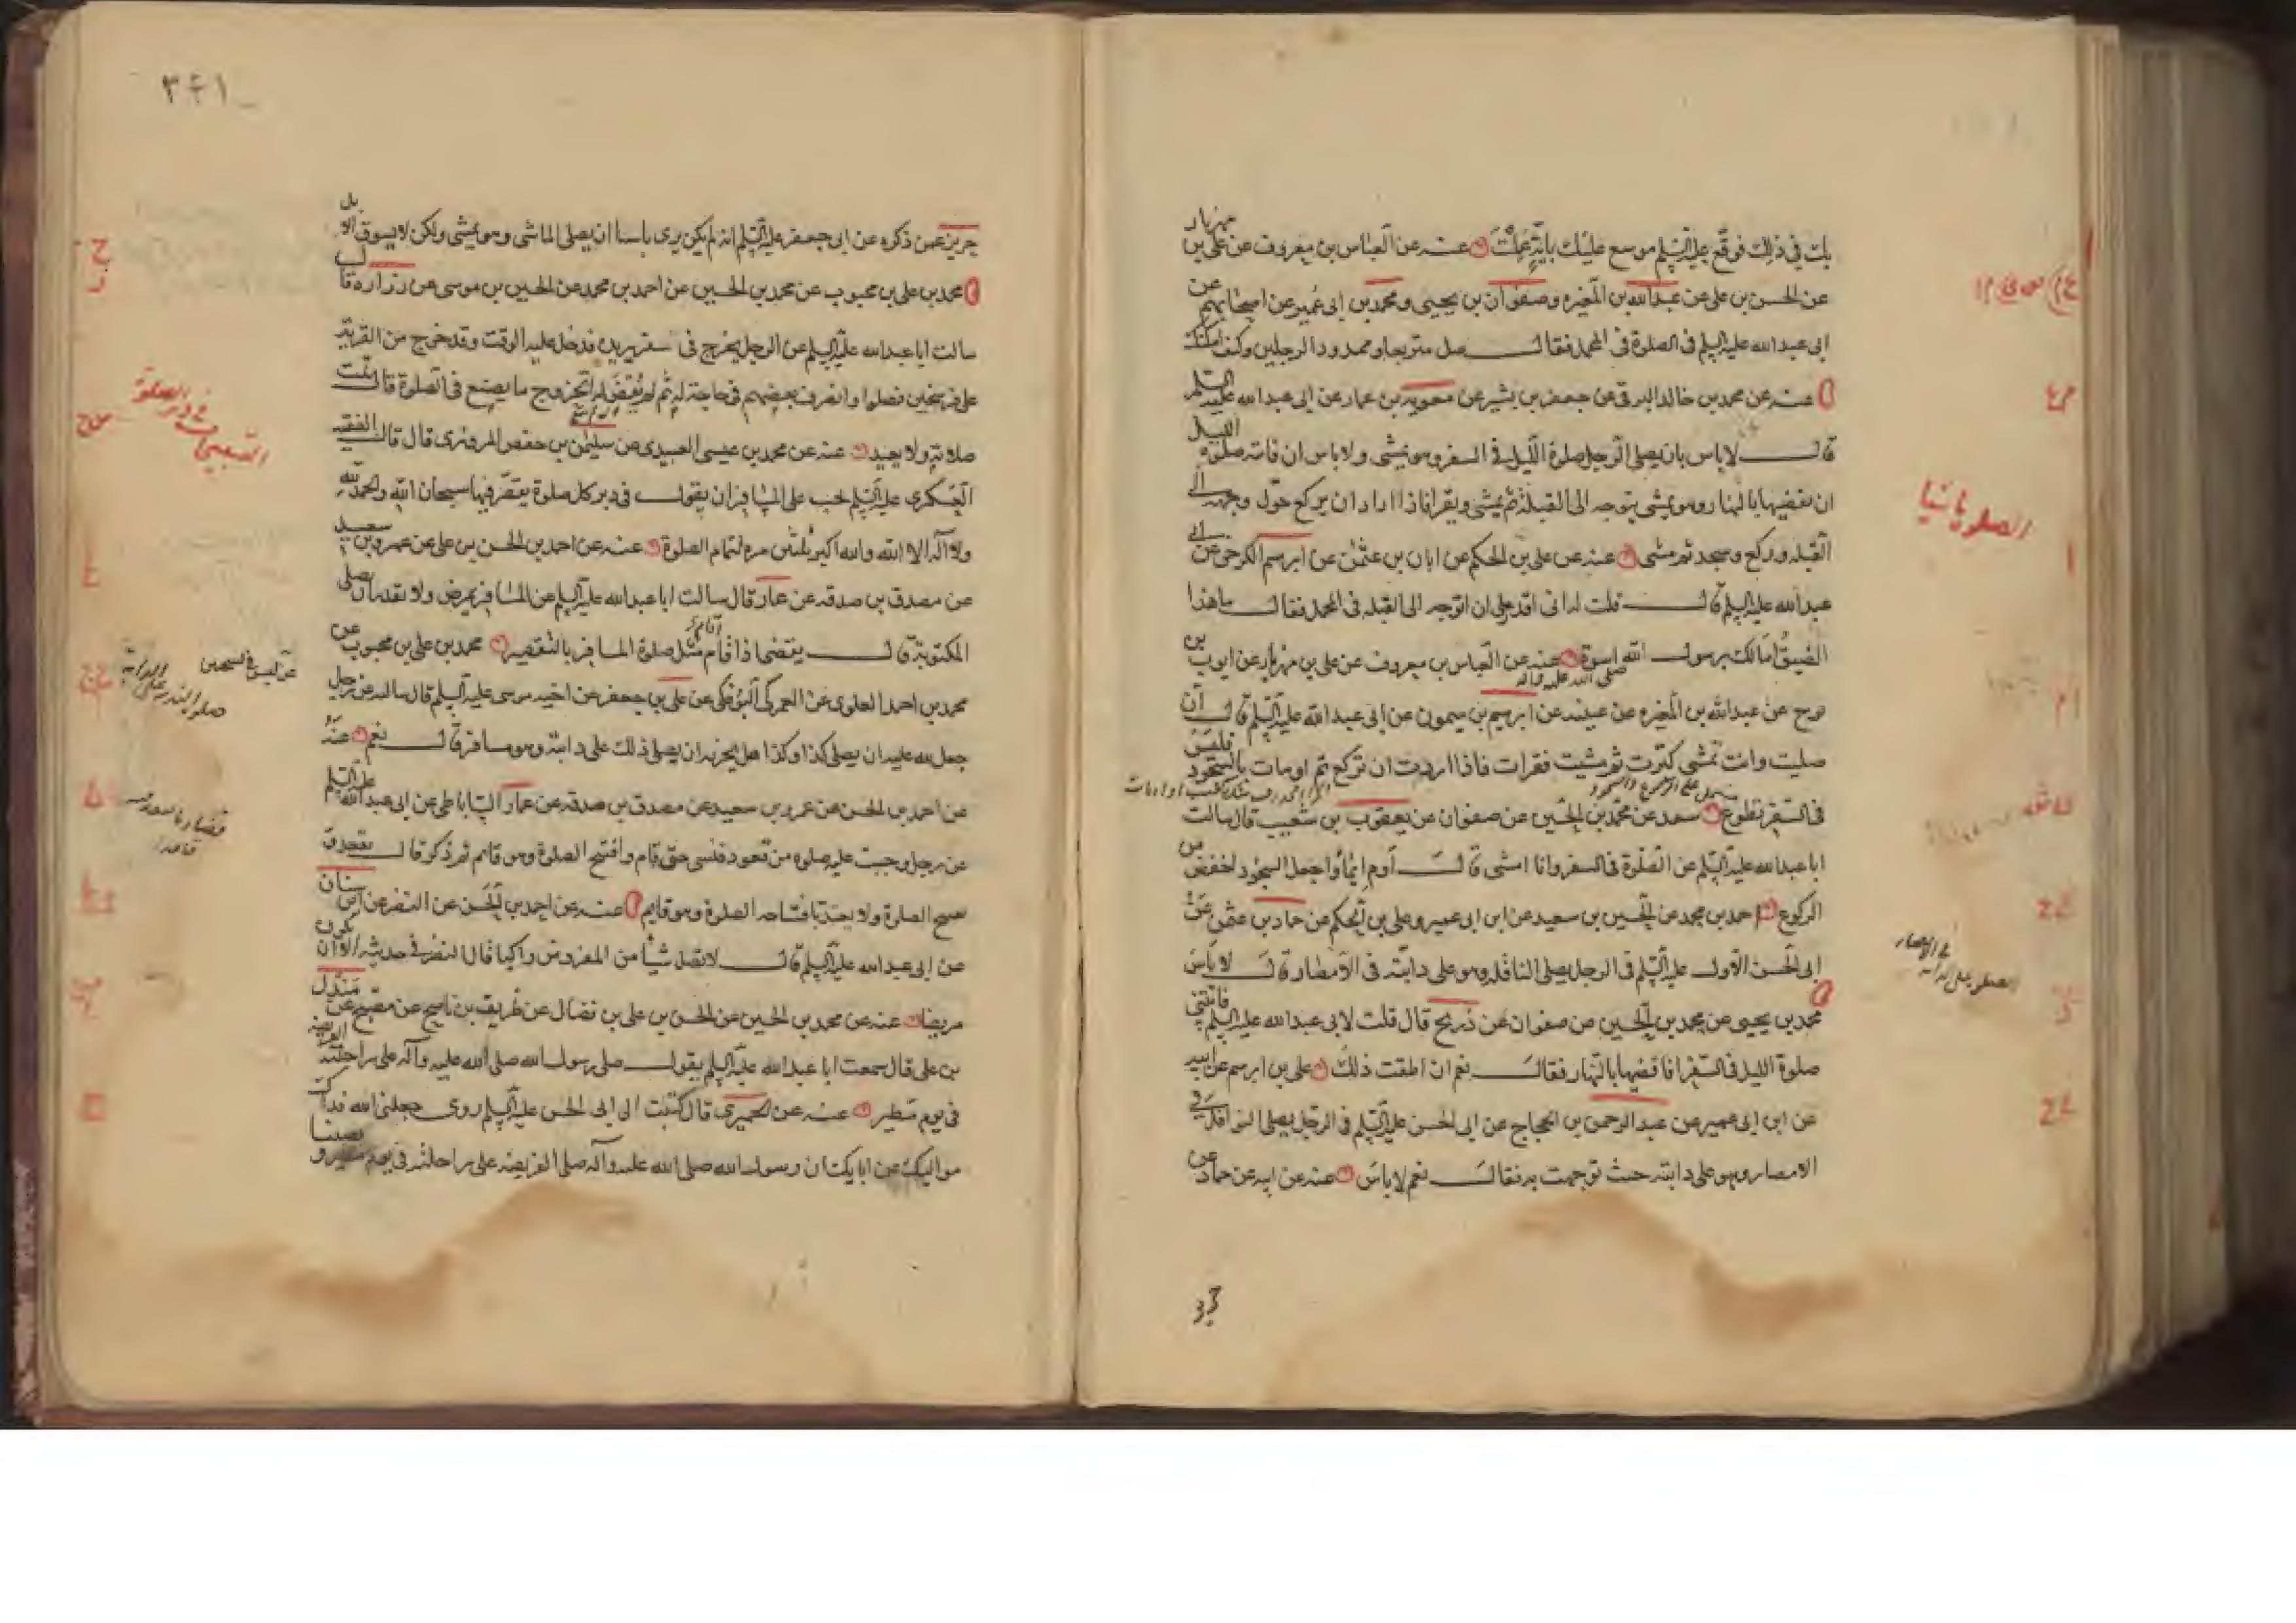 بك في ذلك فوقّع عليه السلم موسع عليك بايّة عملت عنه عن العباس بن معروف عن علي بن مهزيار
عن الحسن بن علي عن عبدالله بن المغيره وصفوان بن يحيى ومحمد بن ابي عمير عن اصحابهم عن
ابي عبد الله عليه السلم في الصلوة في المحمل فقال صل متربعا وممدود الرجلين وكيف امكنك
عنه عن محمد بن خالد البرقي عن جعفر بن بشير عن معويه بن عمار عن ابي عبد الله عليه السلم
قال لا باس بان يصلي الرجل صلوة الليل في السفر وهو يمشي ولا باس ان فاتته صلوة الليل
ان يقضيها بالنهار وهو يمشي يتوجه الى القبلة ثم يمشي ويقرا فاذا اراد ان يركع حوّل وجهه الى
القبله وركع وسجد ثم مشى عنه عن علي بن الحكم عن ابان بن عثمن عن ابرهيم الكرخي عن ابي
عبد الله عليه السلم قال قلت له اني اقدر على ان اتوجه الى القبله في المحمل فقال ما هذا
الضيق اما لك برسول الله صلى الله عليه واله اسوة عنه عن العباس بن معروف عن علي بن مهزيار عن ايوب بن
نوح عن عبدالله بن المغيره عن عيينه عن ابرهيم بن ميمون عن ابي عبد الله عليه السلم قال ان
صليت وانت تمشي كبّرت ثم مشيت فقرات فاذا اردت ان تركع ثم اومات بالسجود فليس
في السفر تطوع سعد عن محمد بن الحسين عن صفوان عن يعقوب بن شعيب قال سالت
ابا عبد الله عليه السلم عن الصلوة في السفر وانا امشي قال اوم ايماوا جعل السجود اخفض من
الركوع احمد بن محمد عن الحسين بن سعيد عن ابن ابي عمير وعلي بن الحكم عن حماد بن عثمن عن
ابي الحسن الاول عليه السلم في الرجل يصلي النافله وهو على دابته في الامصار قال لا باس
محمد بن يحيى عن محمد بن الحسين عن صفوان عن ذريح قال قلت لابي عبد الله عليه السلم فاتتني
صلوة الليل في السفر افاقضيها بالنهار فقال نعم ان اطقت ذلك علي بن ابرهيم عن ابيه
عن ابن ابي عمير عن عبد الرحمن بن الحجاج عن ابي الحسن عليه السلم في الرجل يصلي النوافل في
الامصار وهو على دابته حيث توجهت به فقال نعم لا باس عنه عن ابيه عن حماد عن
الصلوة ماشيا
٣٤١
حريز عمن ذكره عن ابي جعفر عليه السلم انه لم يكن يرى باسا ان يصلي الماشي وهو يمشي ولكن لا يسوق الابل
محمد بن علي بن محبوب عن محمد بن الحسين عن احمد بن محمد عن الحسين بن موسى عن زراره قال
سالت ابا عبد الله عليه السلم عن الرجل يخرج في سفر يريده فدخل عليه الوقت وقد خرج من القرية
على فرسخين فصلوا وانصرف بعضهم في حاجة له ثم لم يقض له الخروج ما يصنع في الصلوة قال تمت
صلاته ولا يعيد عنه عن محمد بن عيسى العبيدي عن سليمن بن حفص المروزي قال قال الفقيه
العسكري عليه السلم يجب على المسافر ان يقول في دبر كل صلوة يقصر فيها سبحان الله والحمد لله
ولا اله الا الله والله اكبر ثلثين مره لتمام الصلوة عنه عن احمد بن الحسن بن علي عن عمرو بن سعيد
عن مصدق بن صدقه عن عمار قال سالت ابا عبد الله عليه السلم عن المسافر يمرض ولا يقدر ان يصلي
المكتوبة قال يقضي اذا قام مثل صلوة المسافر بالتقصير محمد بن علي بن محبوب عن
محمد بن احمد العلوي عن العمركي البوفكي عن علي بن جعفر عن اخيه موسى عليه السلم قال سالته عن رجل
جعل لله عليه ان يصلي كذا وكذا هل يجزيه ان يصلي ذلك على دابته وهو مسافر قال نعم عنه
عن احمد بن الحسن عن عمرو بن سعيد عن مصدق بن صدقه عن عمار الساباطي عن ابي عبد الله عليه السلم
عن رجل وجبت عليه صلوة من قعود فنسي حتى قام وافتتح الصلوة وهو قائم ثم ذكر قال يقعد و
يفتتح الصلوة ولا يعتد بافتتاحه الصلوة وهو قايم عنه عن احمد بن الحسن عن النضر عن ابن سنان
عن ابي عبد الله عليه السلم قال لا تصل شيئا من المفروض راكبا قال النضر في حديثه الا ان يكون
مريضا عنه عن محمد بن الحسين عن الحسن بن علي بن فضال عن ظريف بن ناصح عن مصبح عن مندل
بن علي قال سمعت ابا عبد الله عليه السلم يقول صلى رسول الله صلى الله عليه وآله على راحلته الفريضة
في يوم مطير عنه عن الحميري قال كتبت الى ابي الحسن عليه السلم روى جعلني الله فداك
مواليك عن ابايك ان رسول الله صلى الله عليه وآله صلى الفريضه على راحلته في يوم مطير و